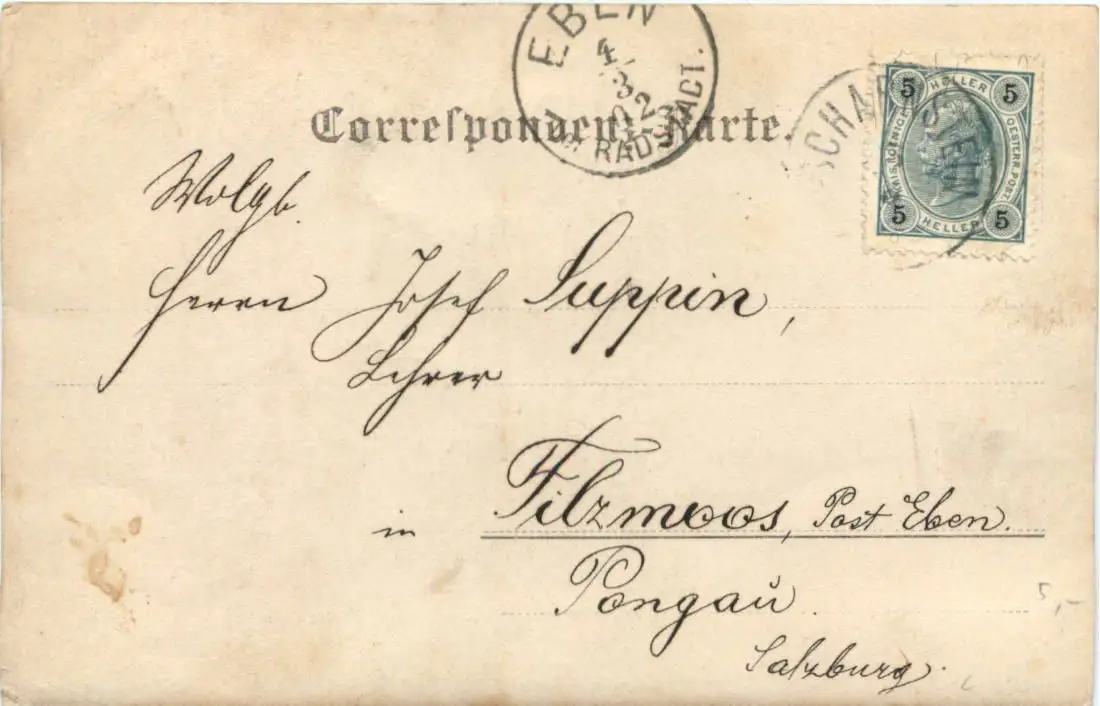 EBEN
4
3
02
RADSTADT.
Correspondenz-Karte.
SCHAR STEIN
5 HELLER 5
KAIS. KOENIGL. OESTERR. POST
5 HELLER 5
Wolgb.
Herrn Josef Suppin,
Lehrer
in Filzmoos, Post Eben.
Pongau
Salzburg.
5,-